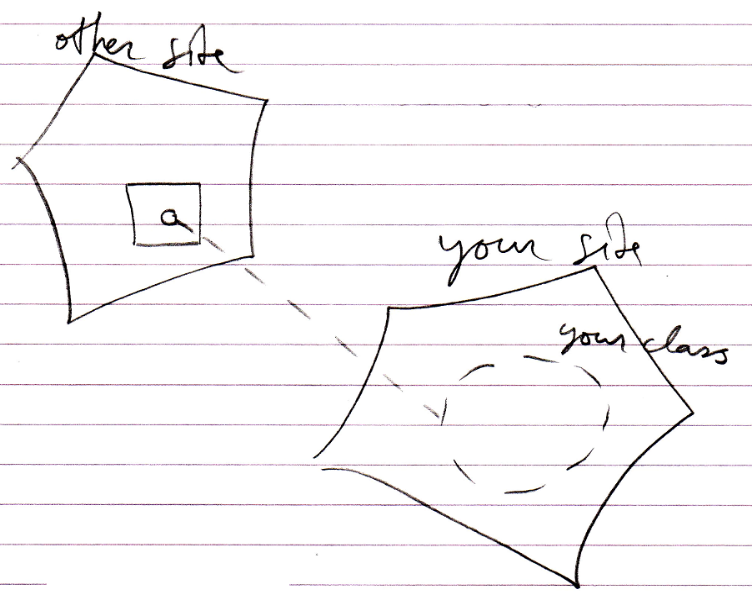 other site
a
your site
your class